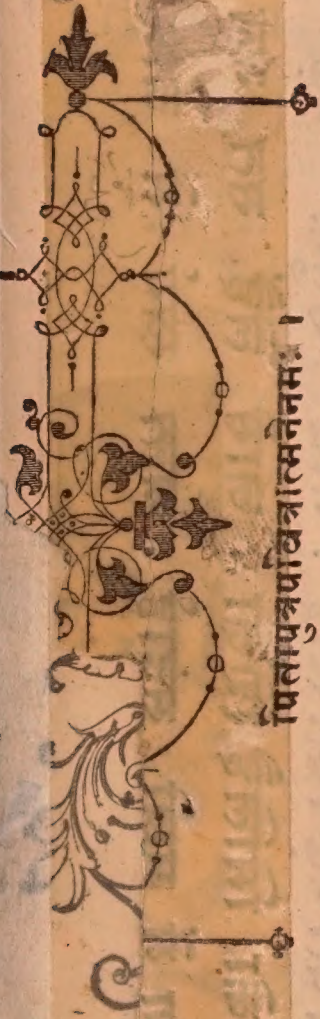 पितापुत्रपवित्रात्मनेनमः ।